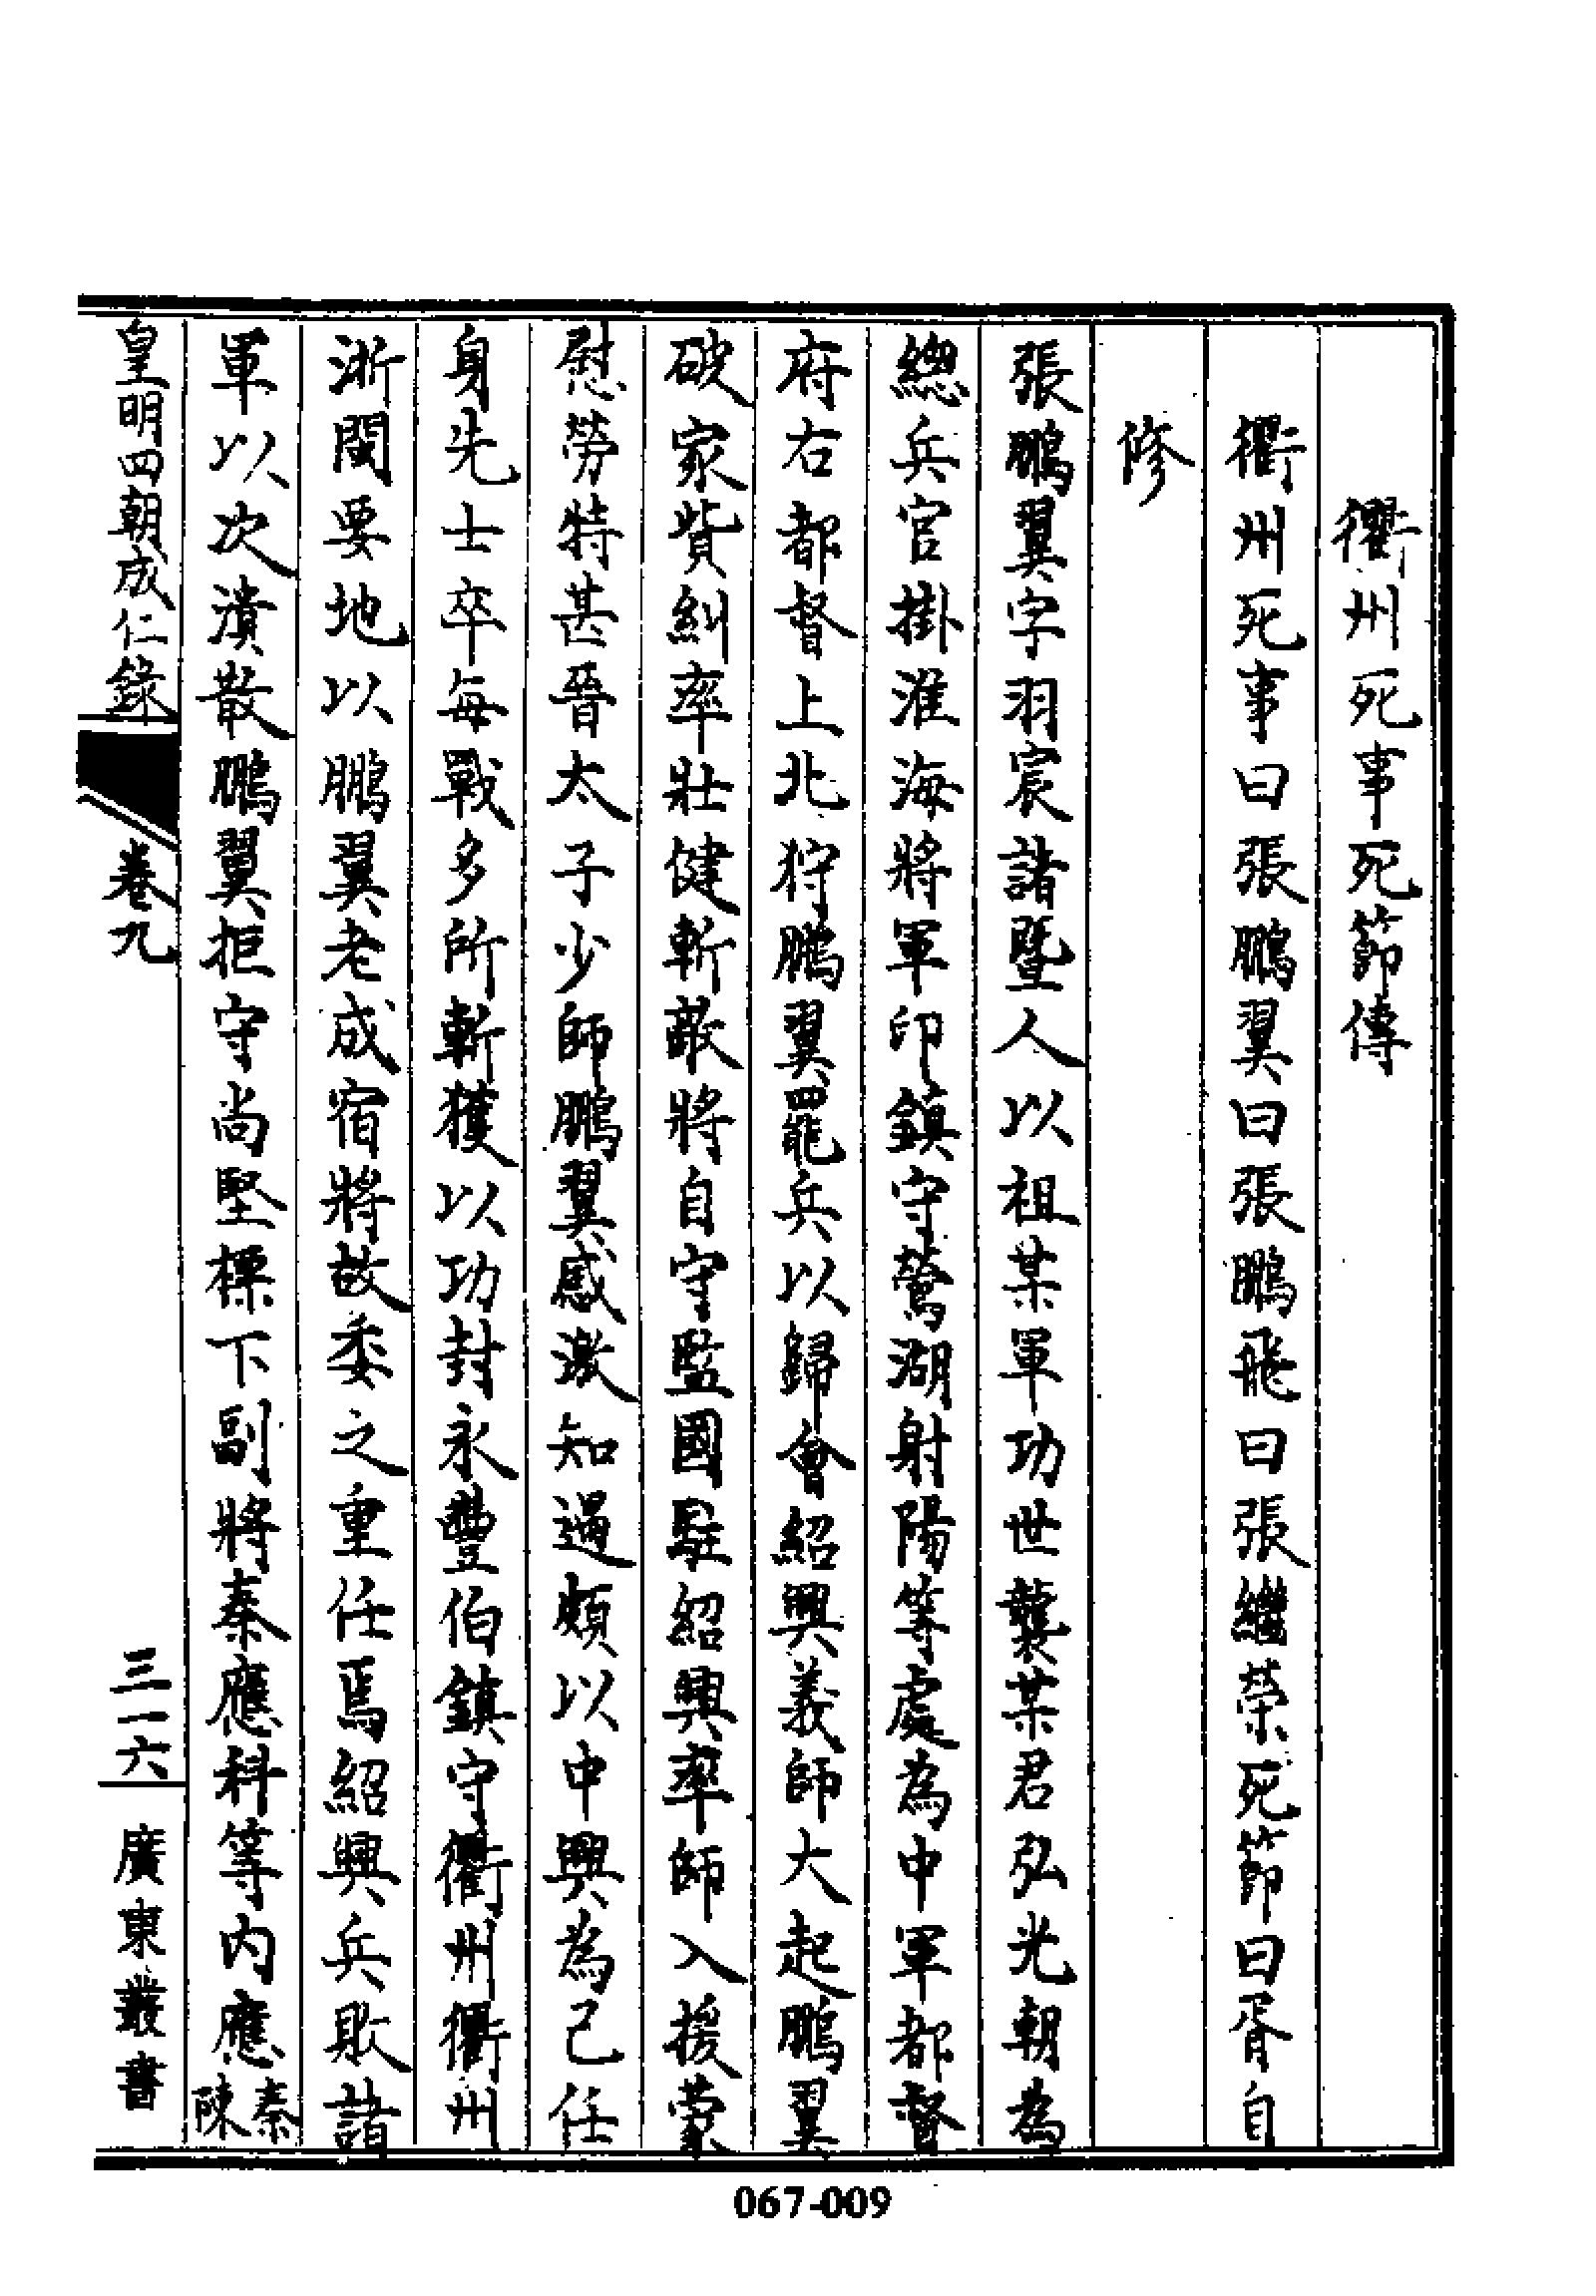 衢州死事死節傳
衢州死事曰張鵬翼曰張鵬飛曰張繼榮死節曰胥自
修
張鵬翼字羽宸諸暨人以祖某軍功世襲某君弘光朝為
總兵官掛淮海將軍印鎮守鶯湖射陽等處為中軍都督
府右都督上北狩鵬翼罷兵以歸會紹興義師大起鵬翼
破家貲糾率壯健斬敵將自守監國駐紹興率師入援蒙
慰勞特甚晉太子少師鵬翼感激知遇頗以中興為己任
身先士卒每戰多所斬獲以功封永豐伯鎮守衢州衢州
浙閩要地以鵬翼老成宿將故委之重任焉紹興兵敗諸
軍以次潰散鵬翼拒守尚堅標下副將秦應科等內應秦
陳
皇明四朝成仁錄 卷九 三一六 廣東叢書
067-009